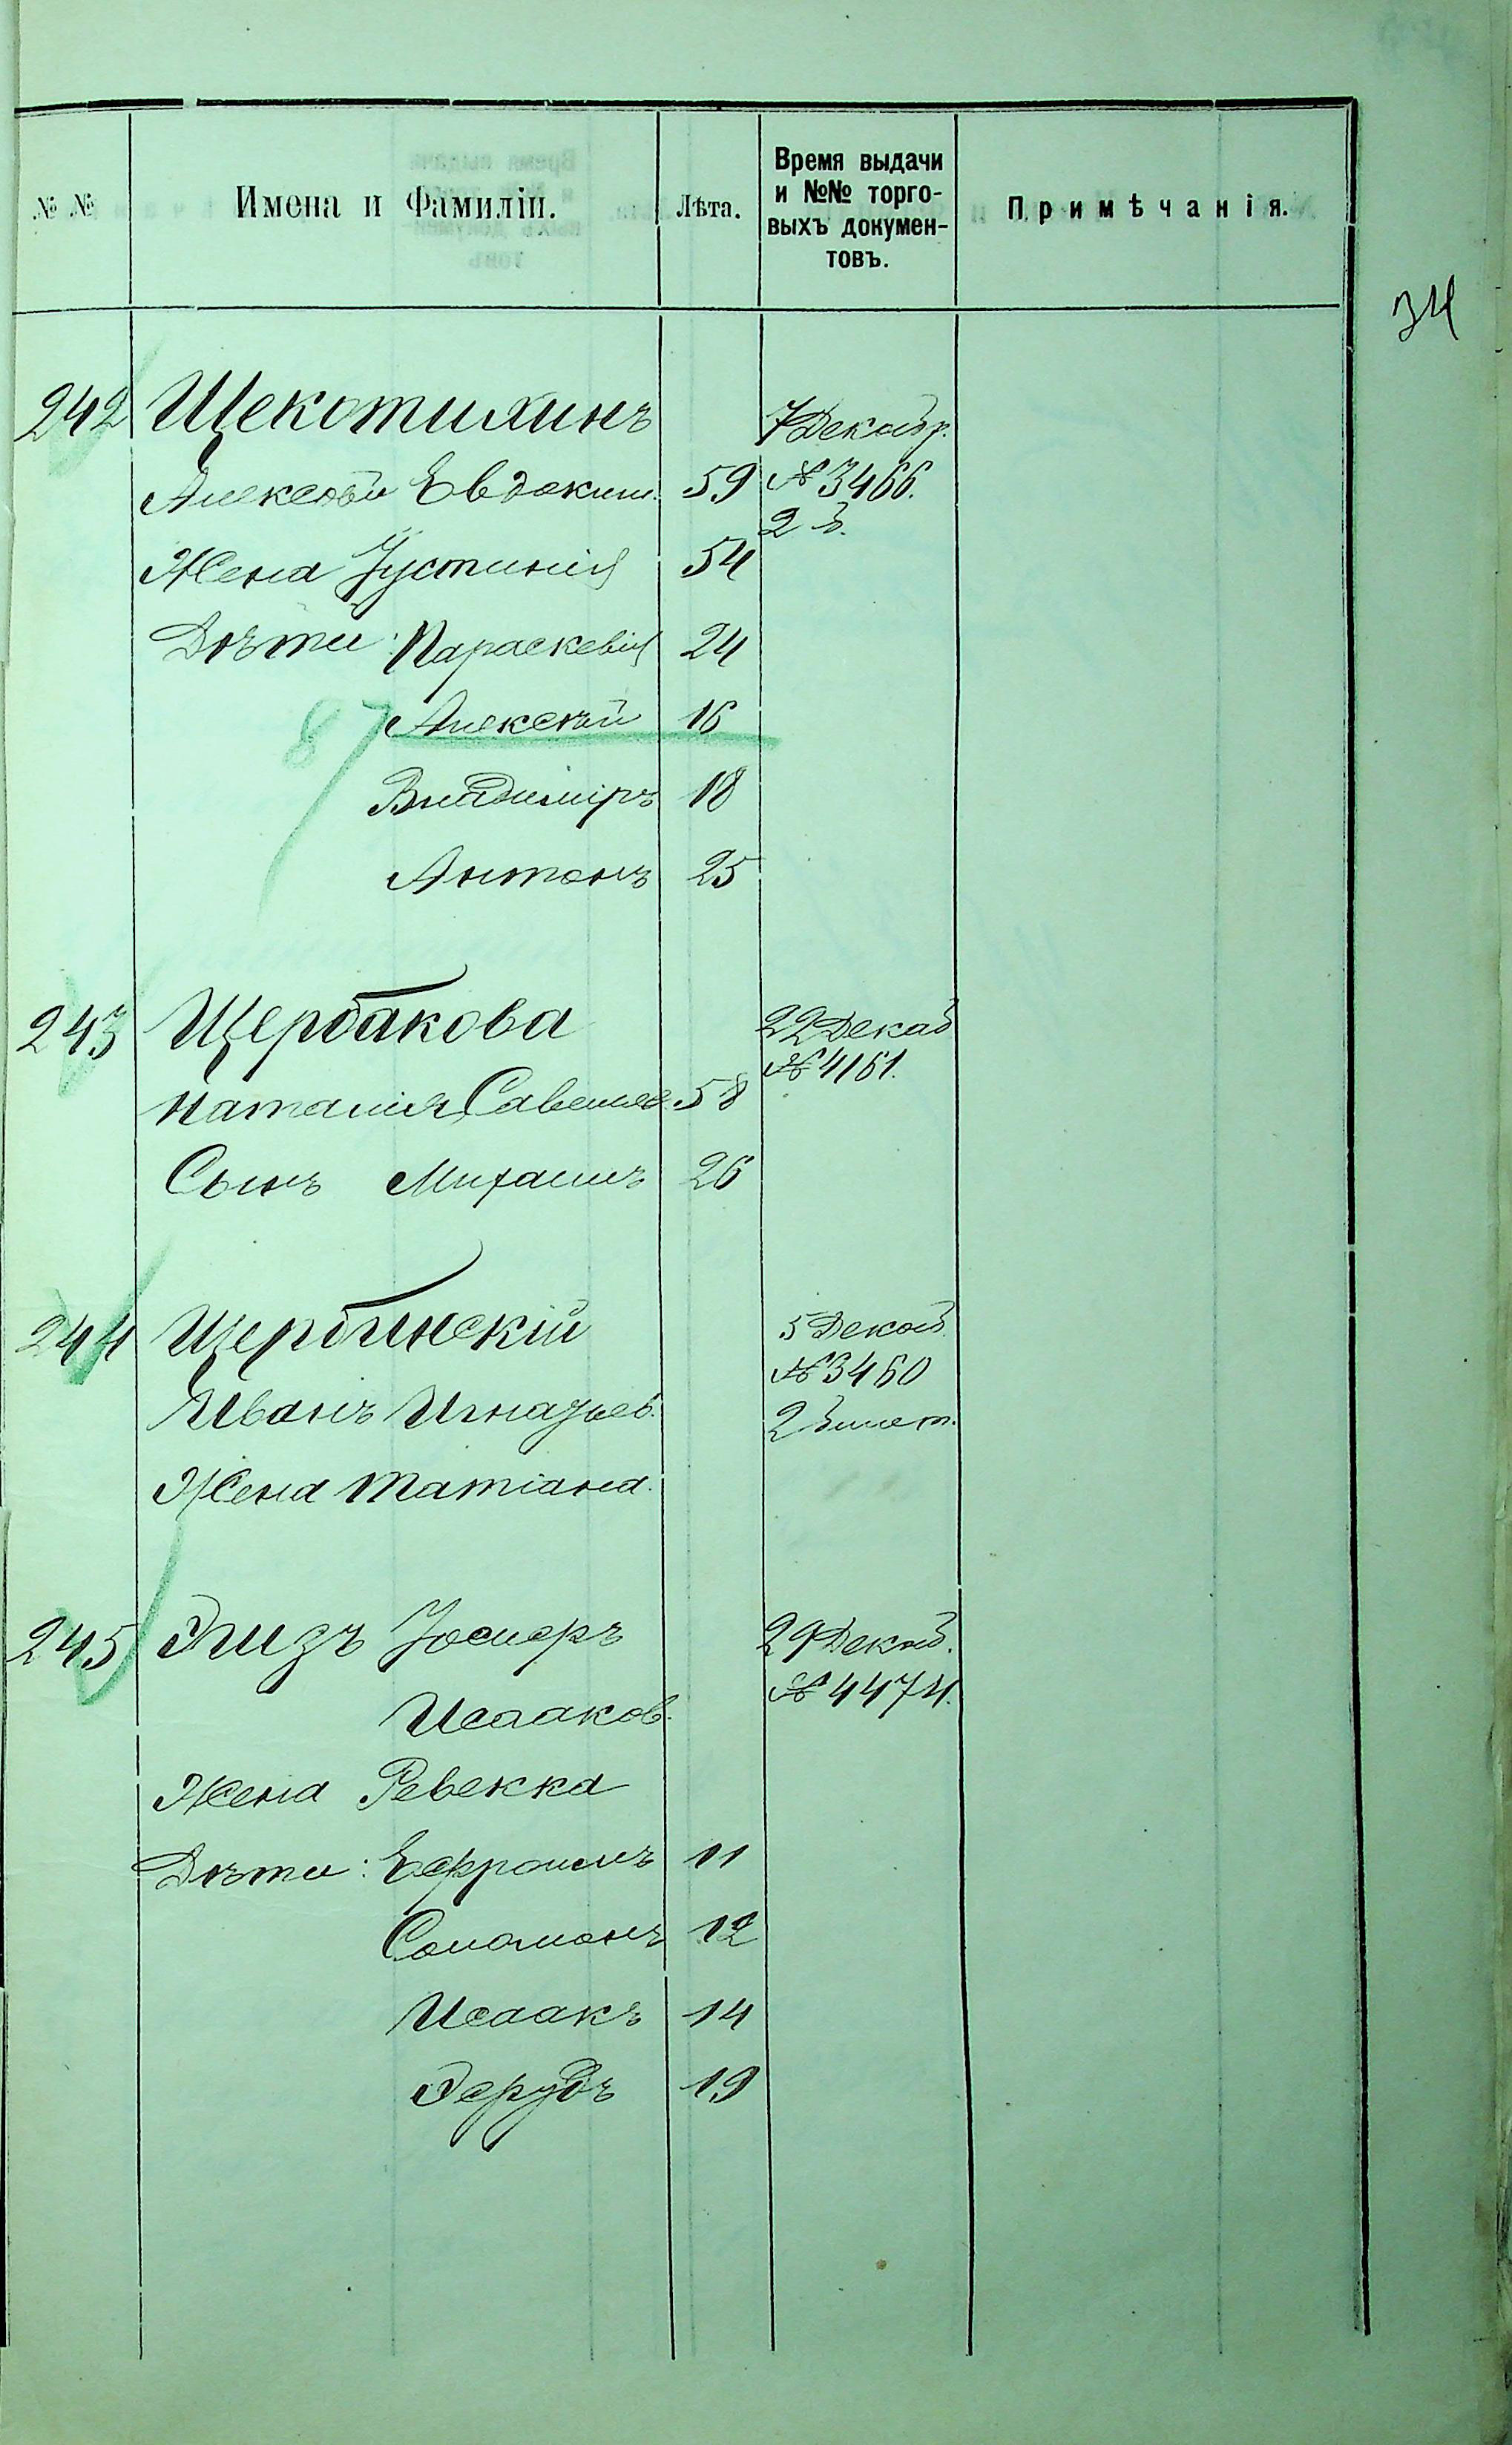 № №
Имена и Фамиліи.
Лѣта.
Время выдачи
и №№ торго-
выхъ докумен-
товъ.
Примѣчанія.
34
242 Щекотихинъ 7 Декабр.
Алексѣй Евдоким. 59 № 3466.
2 б.
Жена Іустинія 54
Дѣти: Параскевія 24
87 Алексѣй 16
Владиміръ 18
Антонъ 25
243 Щербакова 22 Декаб
№ 4161.
Наталія Савельев. 58
Сынъ Михаилъ 26
244 Щербинскій 5 Декаб.
№ 3460
Иванъ Игнатьев. 2 билет.
Жена Татіана.
245 Элизъ Іосифъ 29 Декаб.
№ 4474.
Исааков.
Жена Ревекка
Дѣти: Ефроимъ 11
Соломонъ 12
Исаакъ 14
19